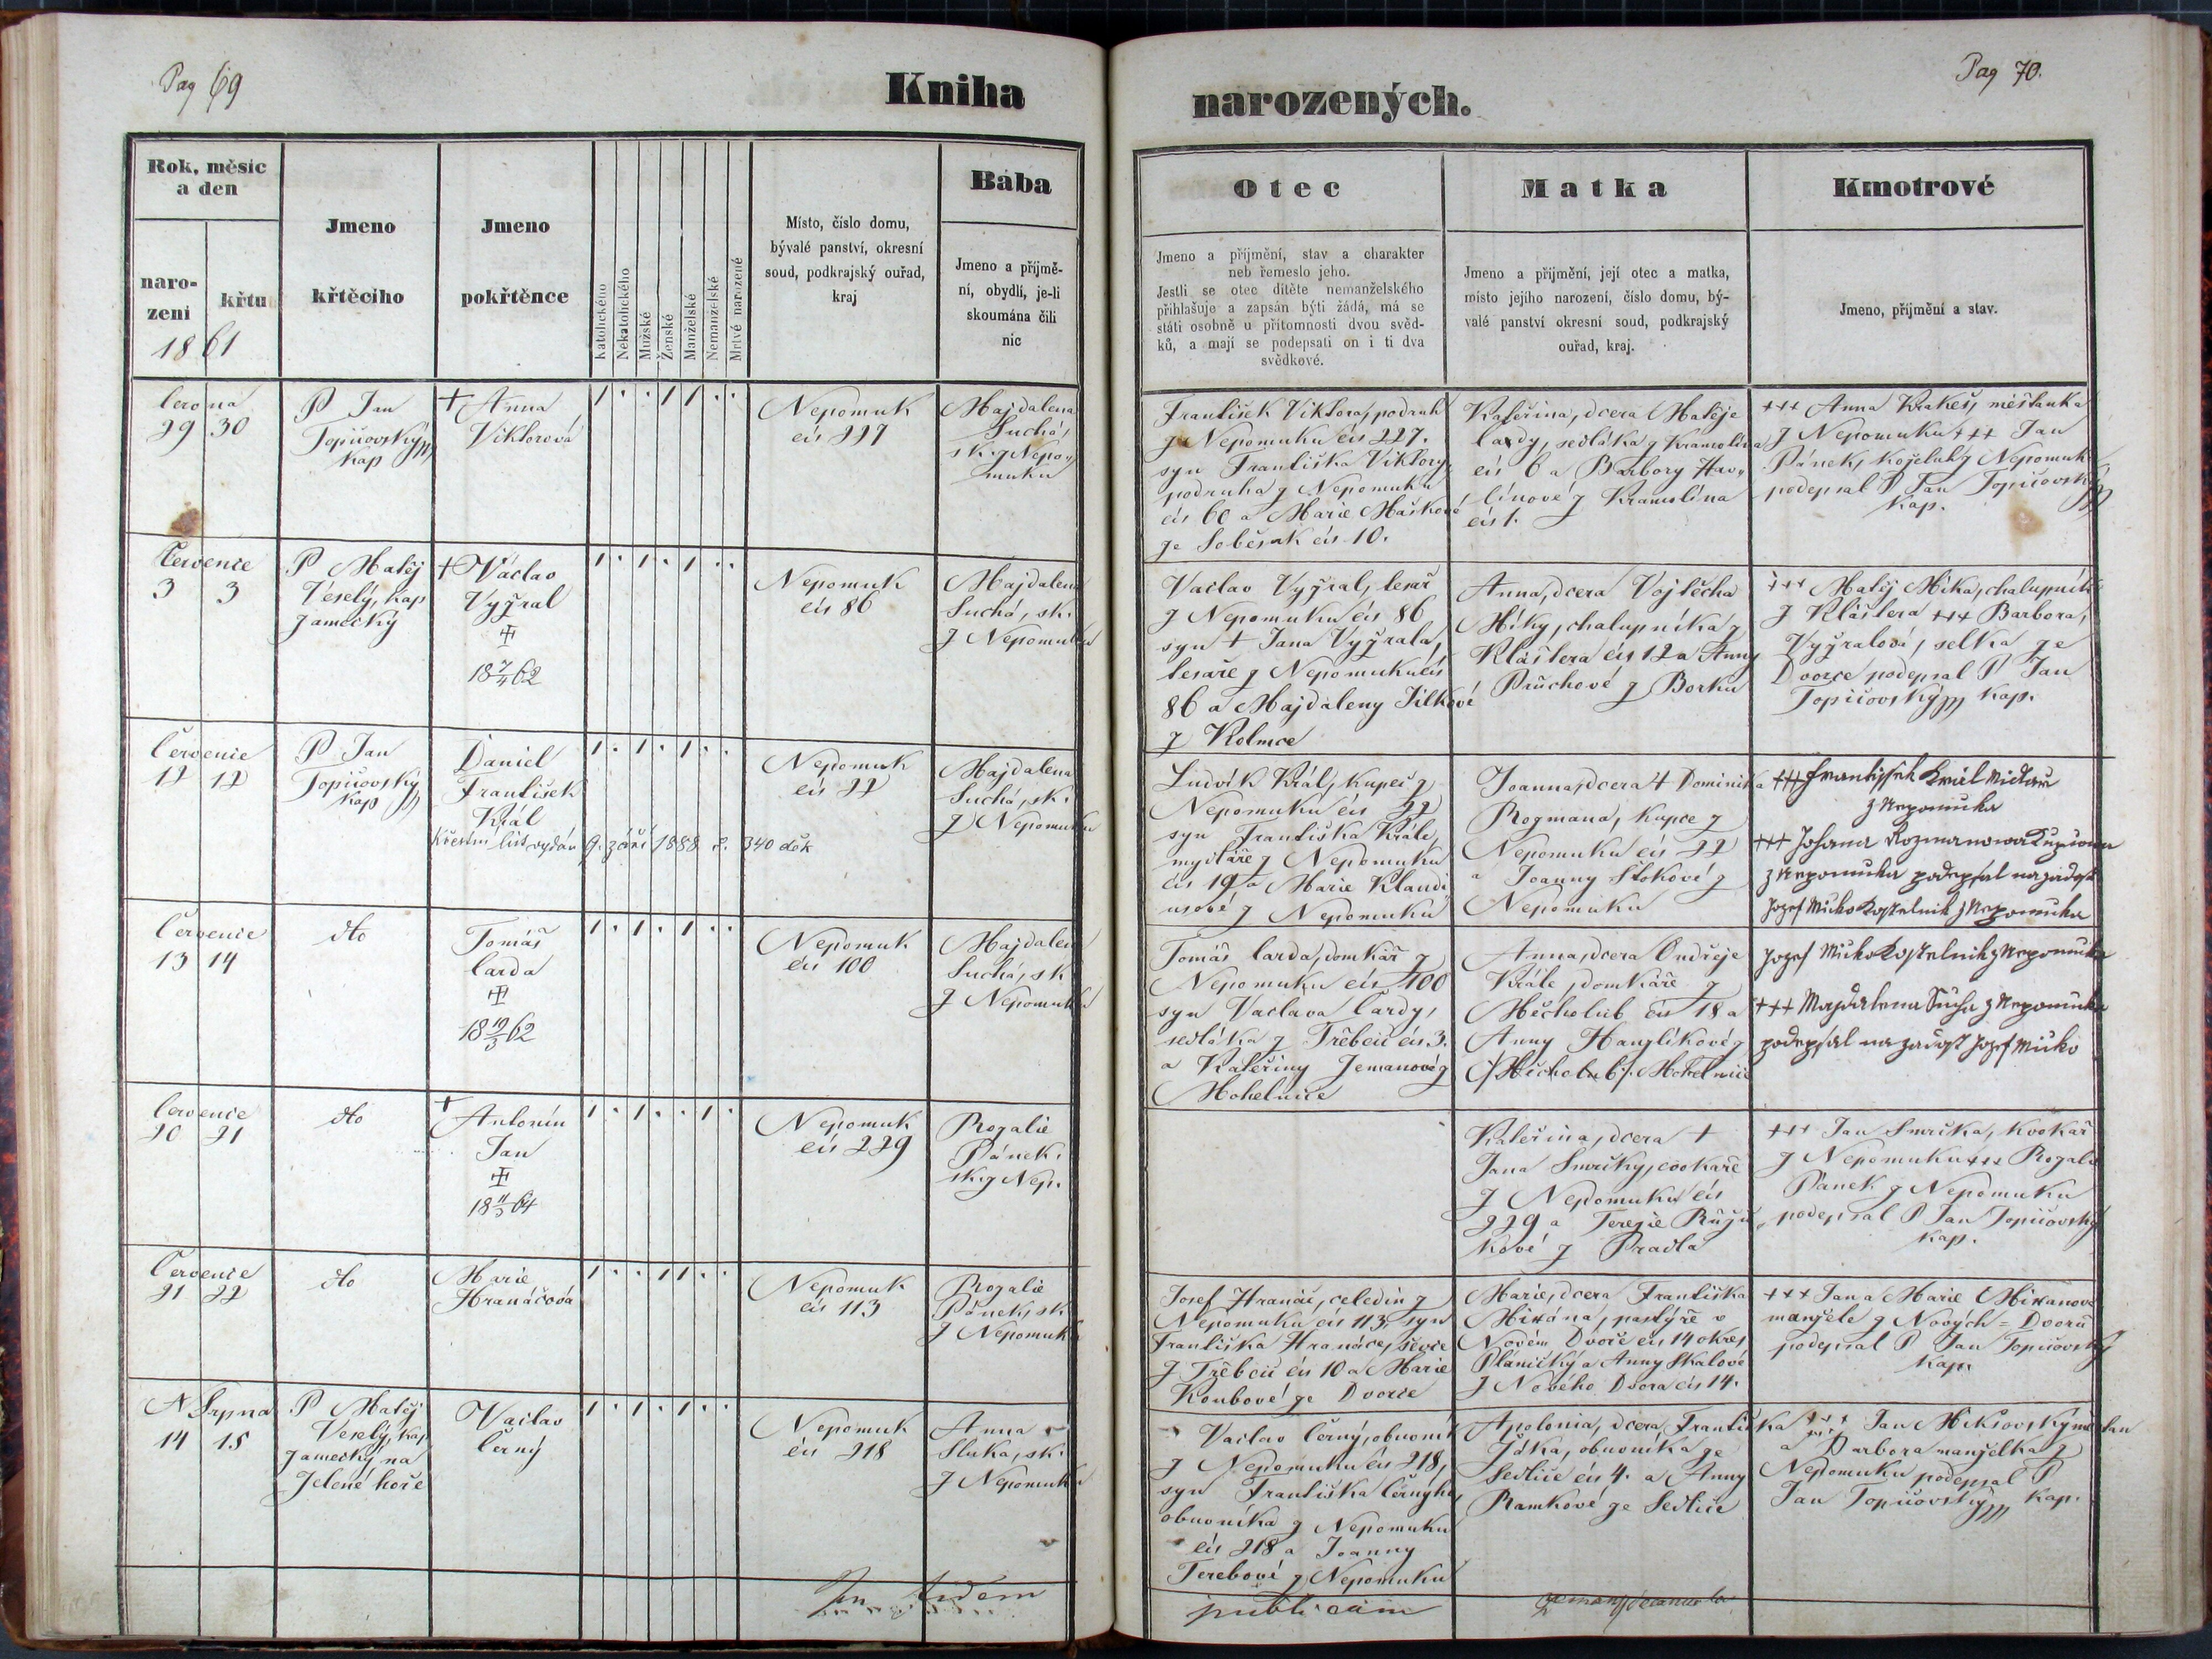 Pag 69
Kniha
narozených.
Pag 70.
Rok, měsíc
a den
naro-
zení
křtu
1861
Jmeno
křtěcího
Jmeno
pokřtěnce
Katolického
Nekatolického
Mužské
Ženské
Manželské
Nemanželské
Mrtvě narozené
Místo, číslo domu,
bývalé panství, okresní
soud, podkrajský ouřad,
kraj
Bába
Jmeno a příjmě-
ní, obydlí, je-li
skoumána čili
nic
Otec
Jmeno a příjmění, stav a charakter
neb řemeslo jeho.
Jestli se otec dítěte nemanželského
přihlašuje a zapsán býti žádá, má se
státi osobně u přítomnosti dvou svěd-
ků, a mají se podepsati on i ti dva
svědkové.
Matka
Jmeno a přijmění, její otec a matka,
místo jejího narození, číslo domu, bý-
valé panství okresní soud, podkrajský
ouřad, kraj.
Kmotrové
Jmeno, příjmění a stav.
Června
29 30
P Jan
Topičovský
Kap
+ Anna
Viktorová
Nepomuk
čís 227
Majdalena
Suchá,
sk. z Nepo„
muku
František Viktora, podruh
z Nepomuku čís 227.
syn Františka Viktory,
podruha z Nepomuku
čís 60 a Marie Maškové
ze Soběsuk čís 10.
Kateřina, dcera Matěje
Cardy, sedláka z Kramolína
čís 6 a Barbory Hav„
línové z Kramolína
čís 1.
+++ Anna Krakeš, měštanka
z Nepomuku +++ Jan
Pánek, koželuh z Nepomuk
podepsal P Jan Topičovský
Kap.
Července
3 3
P Matěj
Veselý, Kap
zamecký
+ Václav
Vyzral
18 7/4 62
Nepomuk
čís 86
Majdalena
Suchá, sk.
z Nepomuku
Vaclav Vyzral, tesař
z Nepomuku čís 86
syn + Jana Vyzrala,
tesaře z Nepomuku čís
86 a Majdaleny Jílkové
z Kolmce
Anna, dcera Vojtěcha
Míky, chalupníka z
Kláštera čís 12 a Anny
Průchové z Borku
+++ Matěj Míka, chalupník
z Kláštera +++ Barbora,
Vyzralová, selka ze
Dvorce podepsal P Jan
Topičovský Kap.
Července
12 12
P Jan
Topičovský
Kap
Daniel
František
Král
Křestní list vydán 9. září 1888 č. 340 děk
Nepomuk
čís 22
Majdalena
Suchá, sk.
z Nepomuku
Ludvík Král, kupec z
Nepomuku čís 22
syn Františka Krále,
mydláře z Nepomuku
čís 19 a Marie Klaudi
usové z Nepomuku
Joanna, dcera + Dominika
Rozmana, kupce z
Nepomuku čís 22
a Joanny Štokové z
Nepomuku
+++ Frantissek Král
z Nepomuka
+++ Johana Rozmanowa Kupcowa
z Nepomuka podepsal na zadost
Jozef Micko Kostelnik z Nepomuka
Července
13 14
dto
Tomáš
Carda
18 19/3 62
Nepomuk
čís 100
Majdalena
Suchá, sk
z Nepomuku
Tomáš Carda, domkář z
Nepomuku čís 100
syn Vaclava Cardy,
sedláka z Třebčic čís 3.
a Kateřiny Zemanové z
Mohelnice
Anna, dcera Ondřeje
Krále, domkáře z
Měcholub čís 18 a
Anny Hanzlíkové z
Měcholub Mohelnice
Jozef Micko Kostelnik z Nepomuka
+++ Majdalena Sucha z Nepomuka
podepsal na zadost Jozef Micko
Července
20 21
dto
+
Antonín
Jan
18 11/3 64
Nepomuk
čís 229
Rozalie
Pánek,
sk. z Nep.
Kateřina, dcera +
Jana Smrčky, cvokaře
z Nepomuku čís
229 a Terezie Růži„
kové z Pradla
+++ Jan Smrčka, kvokař
z Nepomuku +++ Rozalie
Pánek z Nepomuku
podepsal P Jan Topičovský
Kap.
Července
21 22
dto
Marie
Hranáčová
Nepomuk
čís 113
Rozalie
Pánek, sk.
z Nepomuku
Josef Hranáč, čeledín z
Nepomuku čís 113, syn
Františka Hranáče, ševce
z Třebčic čís 10 a Marie
Koubové ze Dvorce
Marie, dcera Františka
pastýře v
Novém Dvoře čís 14 okres
Plánický a Anny Skalové
z Nového Dvora čís 14.
+++ Jan a Marie
manžele z Nových=Dvorů
podepsal P Jan Topičovský
Kap.
Srpna
14 15
P Matěj
Veselý, Kap
zamecký na
Zelené hoře
Vaclav
Černý
Nepomuk
čís 218
Anna
Sluka, sk.
z Nepomuku
Vaclav Černý, obuvník
z Nepomuku čís 218,
syn Františka Černýho,
obuvníka z Nepomuku
čís 218 a Joanny
Terebové z Nepomuku
Apolonia, dcera Františka
Jůka, obuvníka ze
Sedlice čís 4. a Anny
Ramkové ze Sedlice
+++ Jan Mikšovský měštan
a +++ Barbora manželka z
Nepomuku podepsal P
Jan Topičovský Kap.
In fidem
publicam